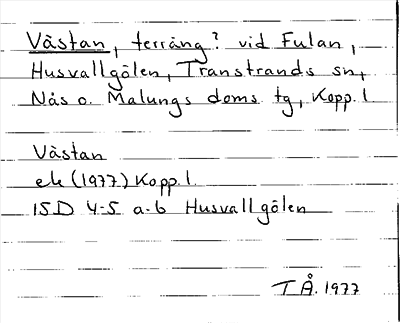 Västan, terräng? vid Fulan,
Husvallgölen, Transtrands sn,
Nås o. Malungs doms tg, Kopp. l
Västan
ek (1977) Kopp. l.
15D 4-5 a-b Husvallgölen
T Å. 1977